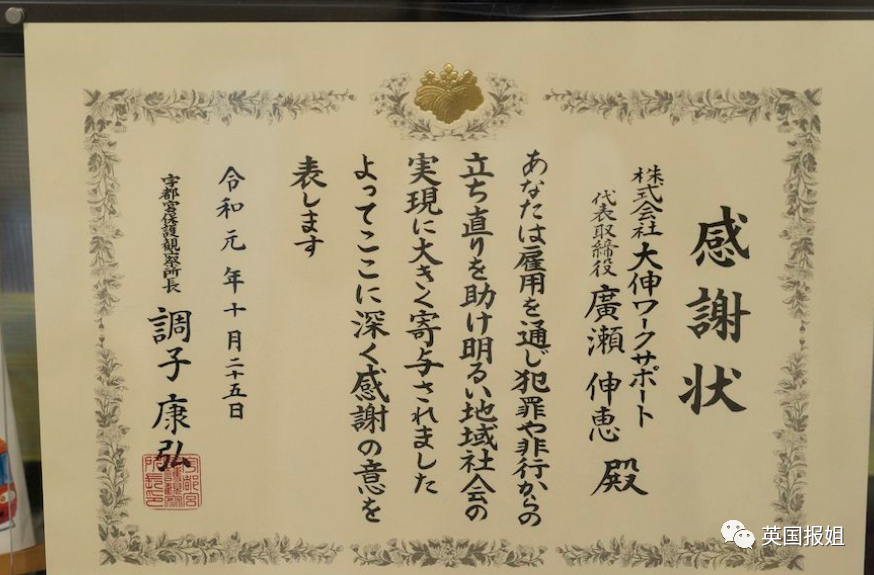 感謝状
株式会社 大伸ワークサポート
代表取締役 廣瀬 伸恵 殿
あなたは雇用を通じ犯罪や非行からの
立ち直りを助け明るい地域社会の
実現に大きく寄与されました
よってここに深く感謝の意を
表します
令和元年十月二十五日
宇都宮保護観察所長 調子 康弘
英国报姐